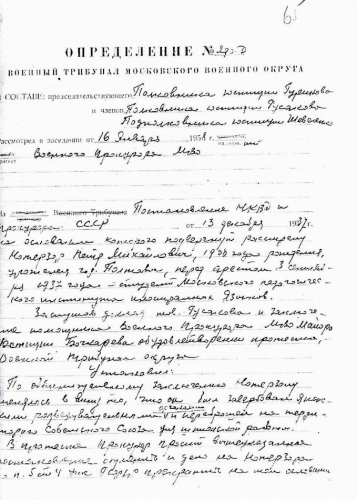 65
ОПРЕДЕЛЕНИЕ №
ВОЕННЫЙ ТРИБУНАЛ МОСКОВСКОГО ВОЕННОГО ОКРУГА
СОСТАВЕ: председательствующего Полковника юстиции
и членов Полковника юстиции Гусакова
Подполковника юстиции Шевченко
Рассмотрел в заседании от 16 Января 195 г.
Военного Прокурора МВО
На Военного Трибунала Постановление НКВД и
Прокурора СССР от 13 декабря 1937г.
на основании которого подвергнут расстрелу
Петр Михайлович, 1908 года рождения,
уроженец гор. Полтавы, перед арестом 3 Сентяб-
ря 1937 года – студент Московского педагогичес-
кого института иностранных языков.
Заслушав доклад тов. Гусакова и заключе-
ние помощника Военного Прокурора МВО Майора
юстиции Бочкарева об удовлетворении протеста,
Военный Трибунал округа
Установил:
По обвинительному заключению
менялось в вину то, что он был завербован
разведывательными органами и переброшен на терри-
торию Советского Союза для шпионской работы.
В протесте прокурор просит вышеуказанное
постановление отменить и дело на
по п. 5 ст 4 УПК РСФСР прекратить на том основании